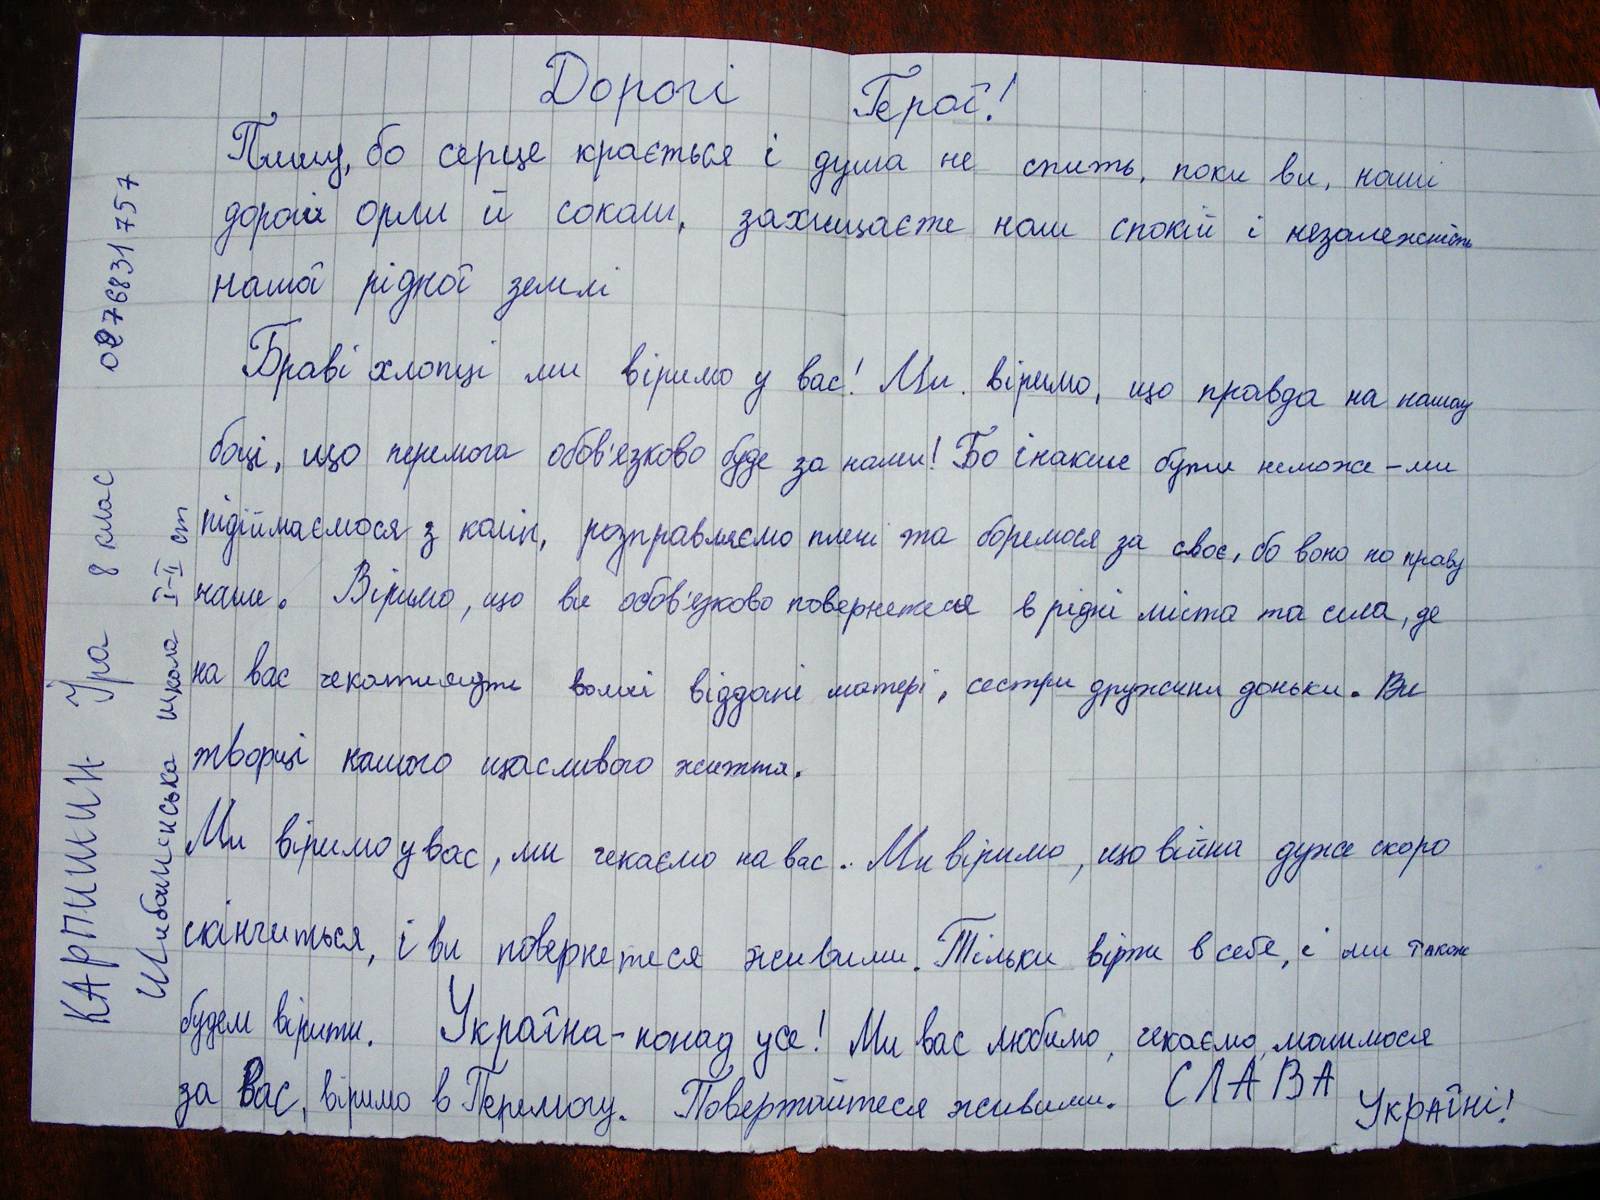 Дорогі Герої!
Пишу, бо серце крається і душа не спить, поки ви, наші
дорогі орли й соколи, захищаєте наш спокій і незалежність
нашої рідної землі
Браві хлопці ми віримо у вас! Ми віримо, що правда на нашому
боці, що перемога обов'язково буде за нами! Бо інакше бути неможе - ми
підіймаємося з колін, розправляємо плечі та боремося за своє, бо воно по праву
наше. Віримо, що ви обов'язково повернетеся в рідні міста та села, де
на вас чекатимуть ваші віддані матері, сестри дружини доньки. Ви
творці нашого щасливого життя.
Ми віримо у вас, ми чекаємо на вас. Ми віримо, що війна дуже скоро
скінчиться, і ви повернетеся живими. Тільки вірте в себе, і ми також
будем вірити. Україна - понад усе! Ми вас любимо, чекаємо, молимося
за Вас, віримо в Перемогу. Повертайтеся живими. СЛАВА Україні!
Іра 8 клас
школа I-II ст